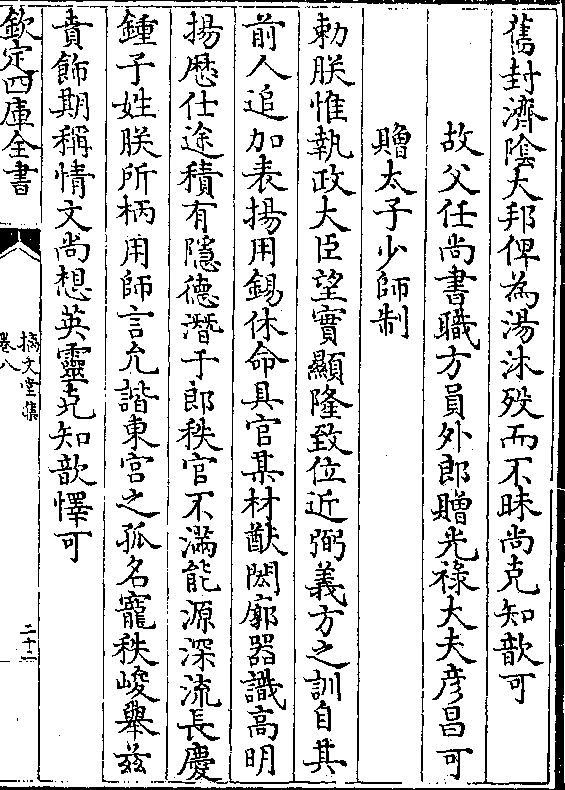 舊封濟陰大邦俾為湯沐殁而不昧尚克知歆可
故父任尚書職方員外郎贈光祿大夫彦昌可
贈太子少師制
勅朕惟執政大臣望實顯隆致位近弼義方之訓自其
前人追加表揚用錫休命具官某材猷閎廓器識高明
揚歷仕途積有隱德潛于郎秩官不滿能源深流長慶
鍾子姓朕所柄用師言允諧東宮之孤名寵秩峻舉兹
賁飾期稱情文尚想英靈克知歆懌可
欽定四庫全書
摛文堂集
卷八
二十二